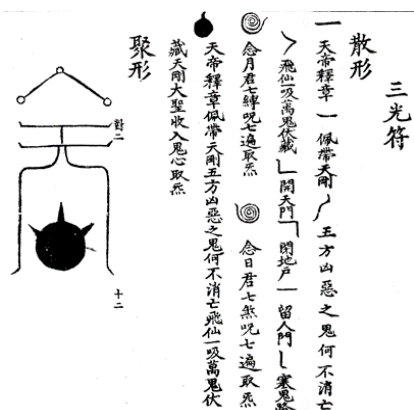 三光符
散形
天帝釋章 佩帶天剛 五方凶惡之鬼何不消亡
飛仙一吸萬鬼伏藏 開天門 閉地戶 留人門 塞鬼路
念月君七縛呪七遍取炁 念日君七煞呪七遍取炁
天帝釋章佩帶天剛五方凶惡之鬼何不消亡飛仙一吸萬鬼伏
藏天剛大聖收入鬼心取炁
聚形
對二
十二